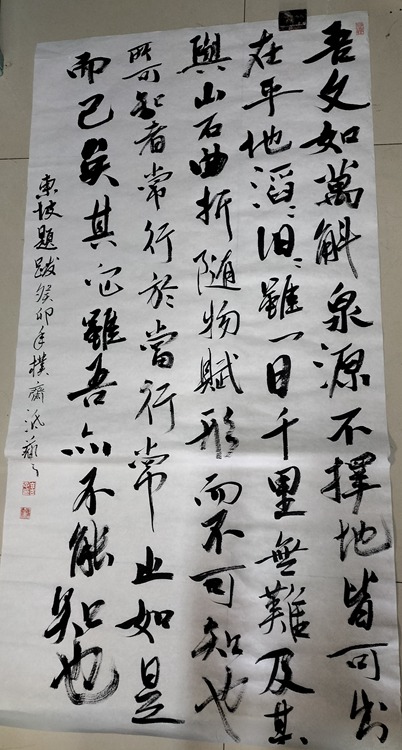 吾文如萬斛泉源不擇地皆可出
在平地滔〻汩〻雖一日千里無難及其
與山石曲折随物賦形而不可知也
所可知者常行於當行常止如是
而已矣其它雖吾亦不能知也
東坡題跋癸卯年樸齋